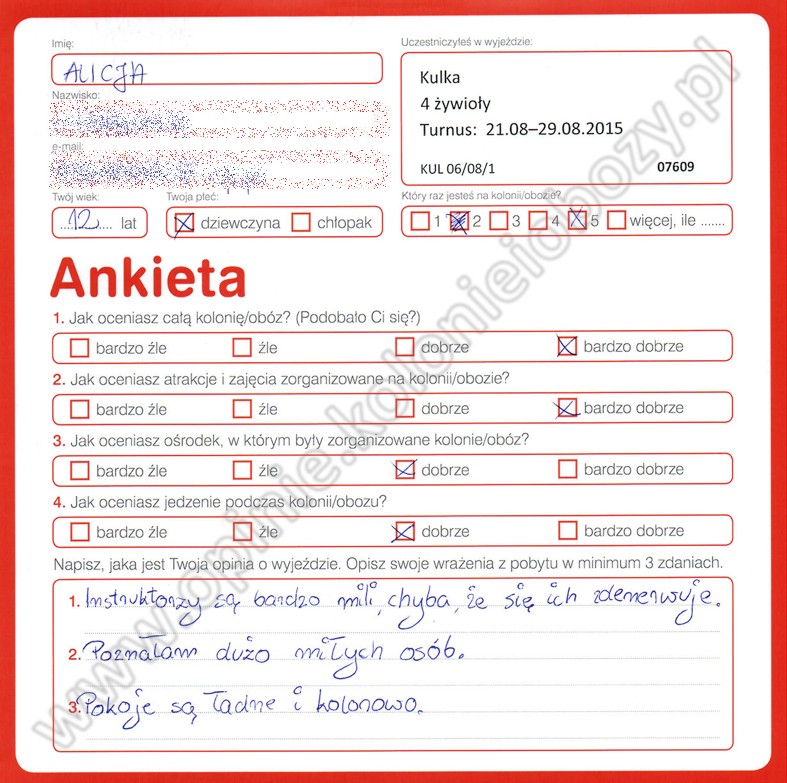 Imię:
ALICJA
Nazwisko:
e-mail:
Twój wiek:
12 lat
Twoja płeć:
dziewczyna chłopak
Uczestniczyłeś w wyjeździe:
Kulka
4 żywioły
Turnus: 21.08–29.08.2015
KUL 06/08/1 07609
Który raz jesteś na kolonii/obozie?
1 2 3 4 5 więcej, ile .......
Ankieta
1. Jak oceniasz całą kolonię/obóz? (Podobało Ci się?)
bardzo źle źle dobrze bardzo dobrze
2. Jak oceniasz atrakcje i zajęcia zorganizowane na kolonii/obozie?
bardzo źle źle dobrze bardzo dobrze
3. Jak oceniasz ośrodek, w którym były zorganizowane kolonie/obóz?
bardzo źle źle dobrze bardzo dobrze
4. Jak oceniasz jedzenie podczas kolonii/obozu?
bardzo źle źle dobrze bardzo dobrze
Napisz, jaka jest Twoja opinia o wyjeździe. Opisz swoje wrażenia z pobytu w minimum 3 zdaniach.
1. Instruktorzy są bardzo mili, chyba, że się ich zdenerwuje.
2. Poznałam dużo miłych osób.
3. Pokoje są ładne i kolorowo.
www.opinie.kolonieiobozy.pl